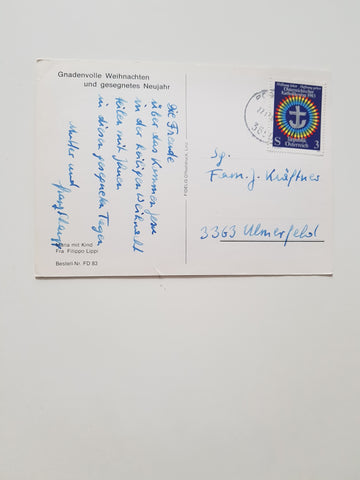 Gnadenvolle Weihnachten
und gesegnetes Neujahr
Die Freude
über das Kommen Jesu
in der heiligen Weihnacht
teilen mit Ihnen
in diesen gesegneten Tagen
Mutter und
mit Kind
Fra Filippo Lippi
Bestell Nr. FD 82
Österreichischer
Katholikentag 1983
Republik
Österreich
S 3
Sg.
Fam. J. Kräftner
3363 Ulmerfeld